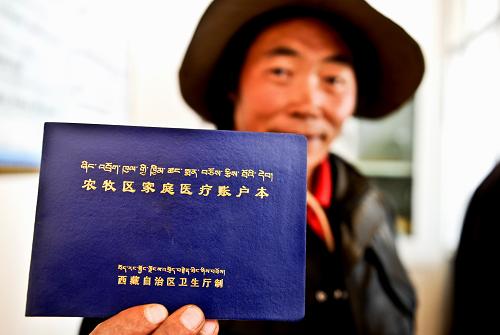 ཞིང་འབྲོག་ཁུལ་གྱི་ཁྱིམ་ཚང་སྨན་བཅོས་རྩིས་ཐོའི་དེབ།
农牧区家庭医疗账户本
西藏自治区卫生厅制